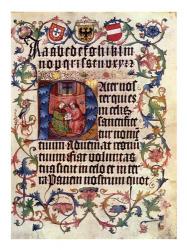 Aabcdefghiklm
nopqrſstuvxyz
Pater nos
ter qui es
in celis
sanctifice
tur nomē
tuum adueniat regnum
tuum fiat voluntas
tua sicut in celo et in ter
ra Panem nostrum quot